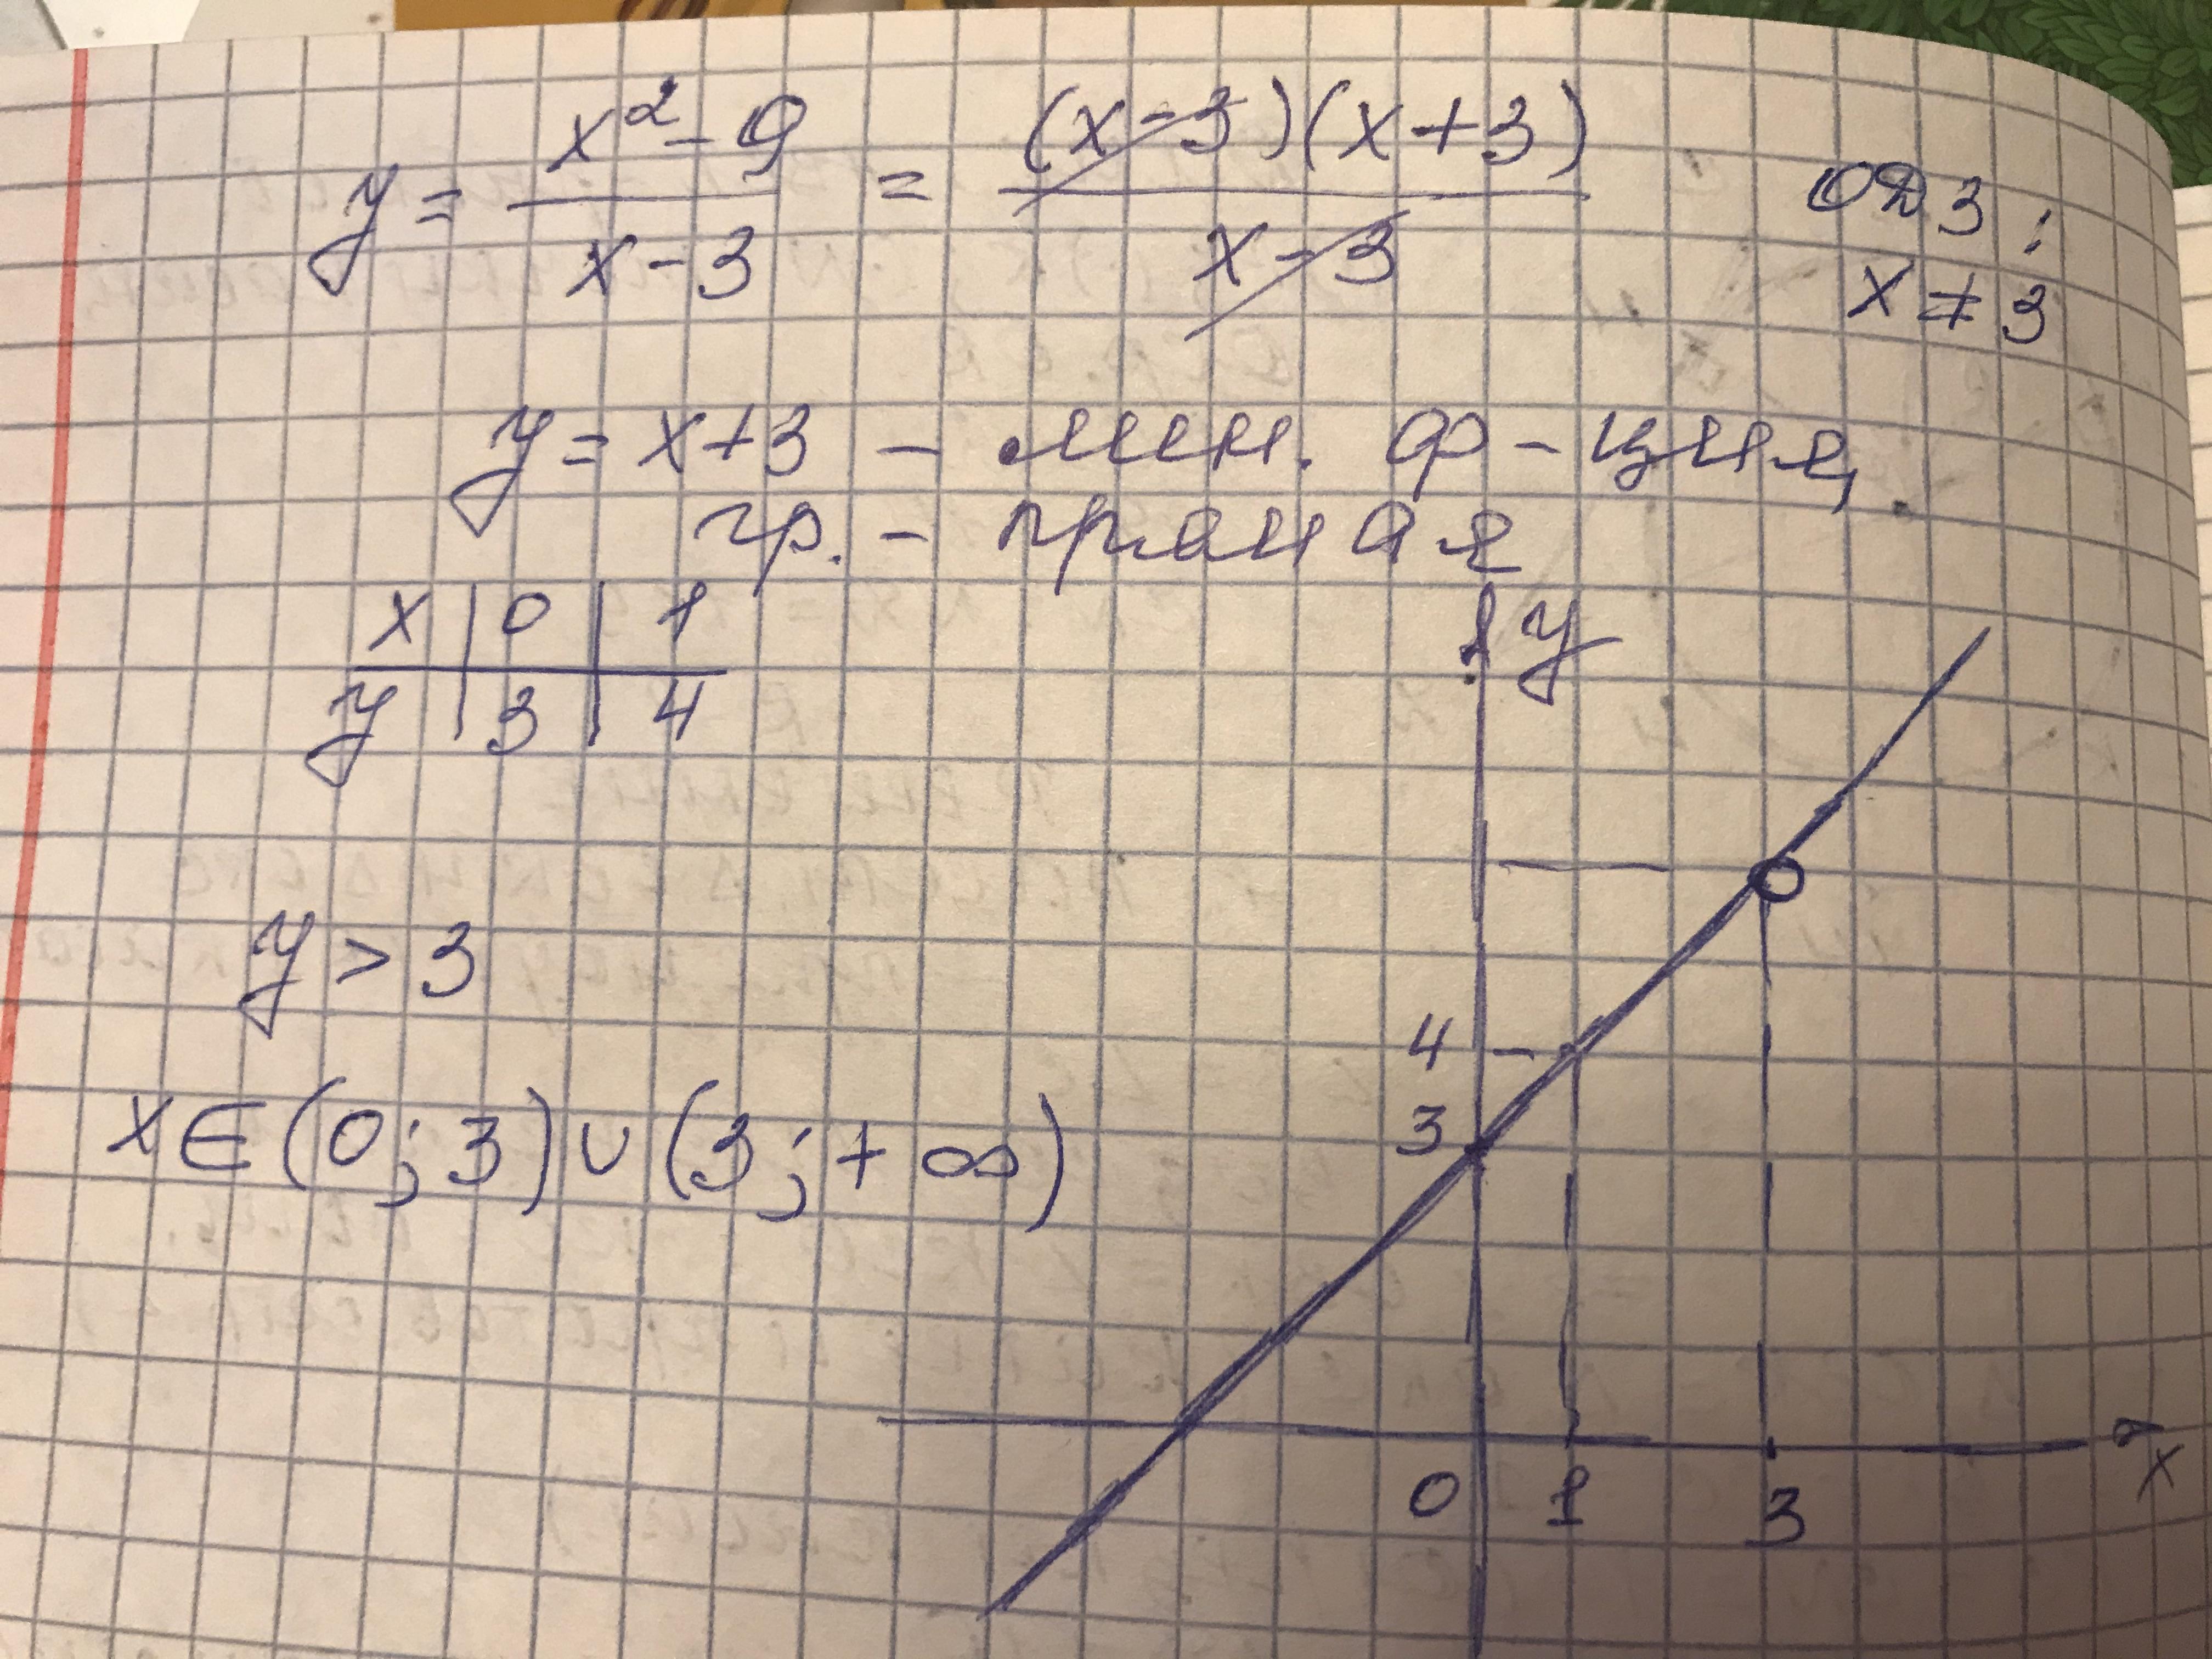 y = x² - 9 / x - 3 = (x - 3)(x + 3) / x - 3
ОДЗ:
x ≠ 3
y = x + 3 - лин. ф-ция.
гр. - прямая
x | 0 | 1
y | 3 | 4
y > 3
x ∈ (0; 3) ∪ (3; + ∞)
y
4
3
0 1 3
x